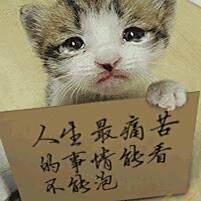 人生最痛苦
的事情能看
不能泡